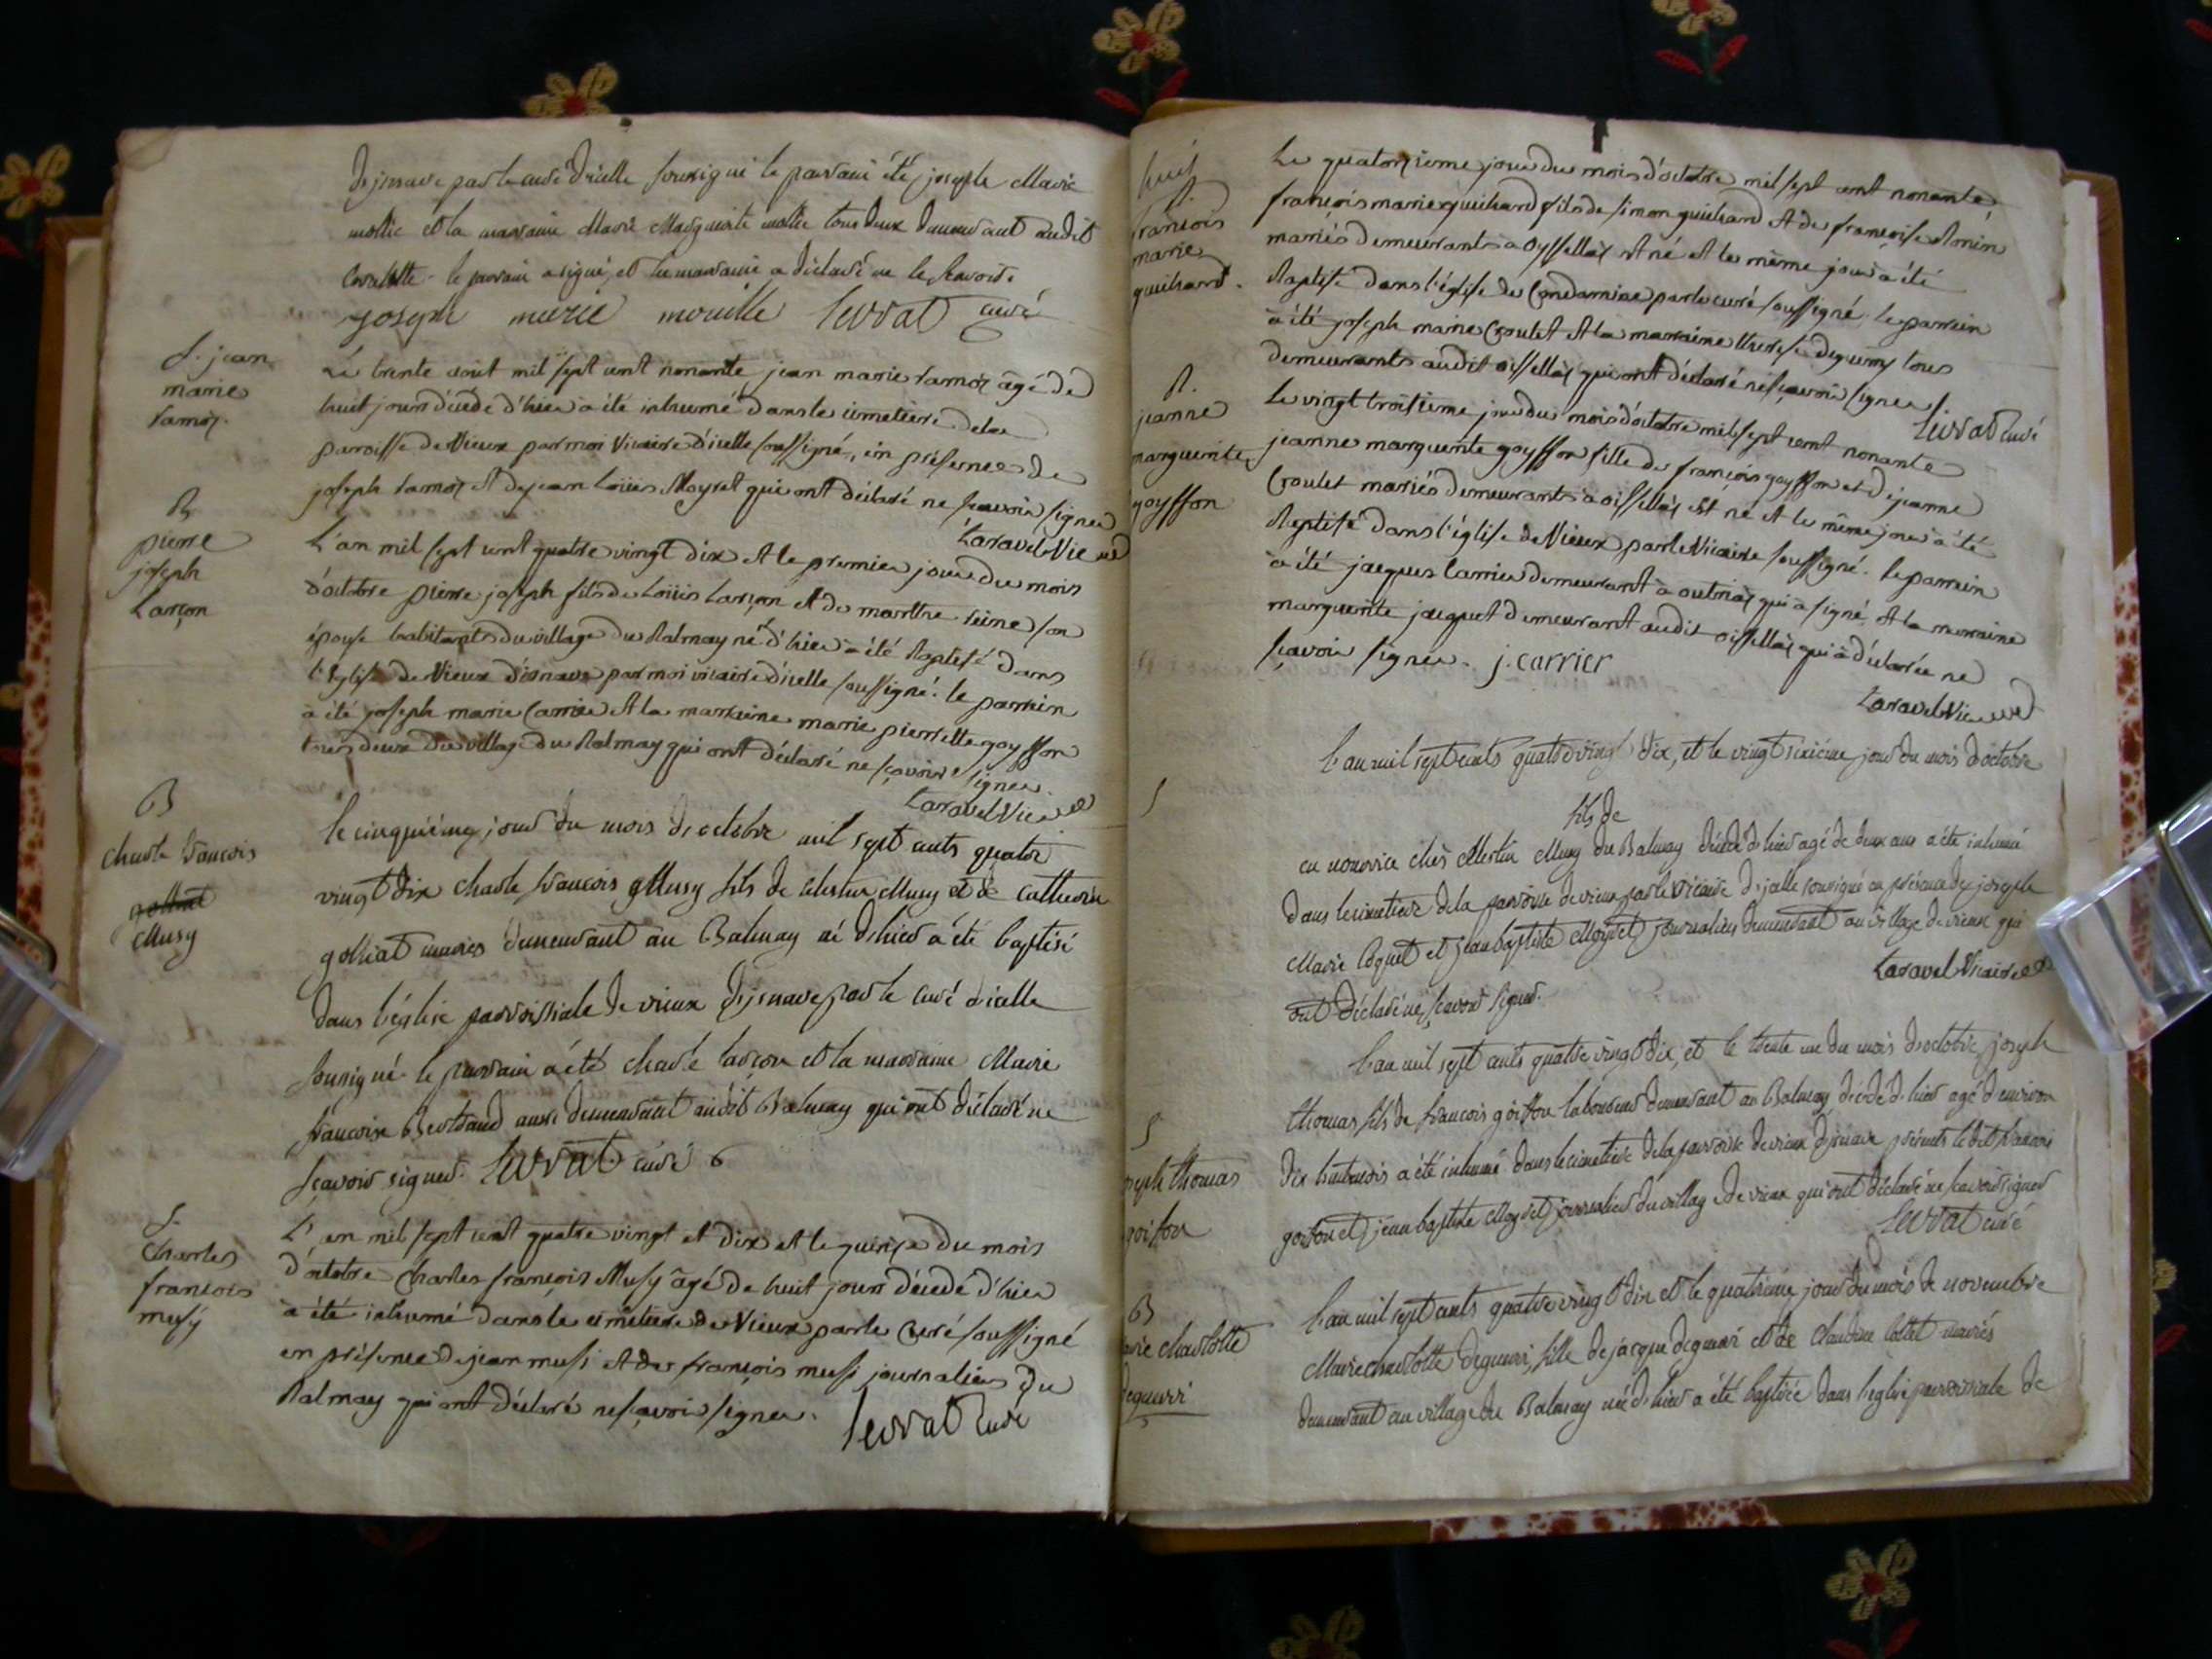 d'jsnave par le curé d'icelle soussigné le parrain été joseph Marie
mollie et la marraine Marie Marguerite mollie tous deux demeurant audit
le parrain a signé, et la marraine a déclaré ne le scavoir.
joseph marie Levrat curé
S. jean
marie
ramoz.
Le trente aout mil sept cent nonante jean marie ramoz âgé de
huit jours décédé d'hier a été inhumé dans le cimetiere de la
paroisse de Vieux par moi Vicaire d'icelle soussigné, en présence de
joseph ramoz et de jean Loüis Moyret qui ont déclaré ne scavoir signer
Laravel Vic
B
pierre
joseph
Larçon
L'an mil sept cent quatre vingt dix et le premier jour du mois
d'octobre pierre joseph fils de Loüis Larçon et de marthe reine son
épouse habitants du village du Balmay né d'hier a été Baptisé dans
l'Eglise de Vieux d'isnave par moi vicaire d'icelle soussigné. le parrein
a été joseph marie Carrier et la marraine marie pierrette goyffon
tous deux du village du Balmay qui ont déclaré ne sçavoir signer.
Laravel Vic
B
charle francois
golliat
Musy
le cinquième jour du mois d'octobre mil sept cents quatre
vingt dix charle francois Musy fils de Musy et de catherine
golliat mariés demeurant au Balmay né d'hier a été baptisé
dans l'église parroissiale de vieux d'jsnave par le curé d'icelle
soussigné. le parrain a été charle larçon et la marraine Marie
francoise Bertrand aussi demeurant audit Balmay qui ont déclaré ne
sçavoir signer. Levrat curé
S.
Charles
francois
musy
L'an mil sept cent quatre vingt et dix et le quinze du mois
d'octobre Charles françois Musy âgé de huit jours décédé d'hier
a été inhumé dans le cimetiere de Vieux par le Curé soussigné
en présence de jean musi et de francois musi journaliers du
Balmay qui ont déclaré ne sçavoir signer.
Levrat Curé
huit
B.
francois
marie
guichard.
Le quatorzieme jour du mois d'octobre mil sept cent nonante
françois marie guichard fils de simon guichard et de françoise
mariés demeurants a oyssellaz est né et le même jour a été
Baptisé dans l'église de Condamine par le curé soussigné. le parrein
a été joseph marie Croulet et la marraine therese deguerry tous
demeurants audit oissellaz qui ont déclaré ne sçavoir signer.
Levrat Curé
B.
jeanne
marguerite
goyffon
Le vingt troisieme jour du mois d'octobre mil sept cent nonante
jeanne marguerite goyffon fille de françois goyffon et de jeanne
Croulet mariés demeurants a oissellaz est né et le même jour a été
Baptisé dans l'église de Vieux par le Vicaire soussigné. le parrein
a été jacques Carrier demeurant à outriaz qui a signé, et la marraine
marguerite jacquet demeurant audit oissellaz qui a déclarée ne
sçavoir signer. j. carrier
Laravel Vic
S
L'an mil sept cents quatre vingt dix, et le vingt sixième jour du mois d'octobre
fils de
en nourrice chés Musy du Balmay décédé d'hier agé de deux ans a été inhumé
dans le cimetiere de la parroisse de vieux par le vicaire d'jcelle soussigné en présence de joseph
Marie loquet et jean baptiste Moyret journaliers demeurant au village de vieux qui
ont déclaré ne sçavoir signer.
Laravel Vicaire
S
joseph thomas
goiffon
L'an mil sept cents quatre vingt dix, et le trente un du mois d'octobre, joseph
thomas fils de francois goiffon laboureur demeurant au Balmay décédé d'hier agé d'environ
dix huit mois a été inhumé dans le cimetiere de la parroisse de vieux d'jsnave présents ledit francois
goiffon et jean baptiste Moyret journalier du village de vieux qui ont déclaré ne sçavoir signer
Levrat curé
B
marie charlotte
deguerri
L'an mil sept cents quatre vingt dix et le quatrième jour du mois de novembre
Marie charlotte deguerri, fille de jacque deguerri et de Claudine Collet mariés
demeurant au village du Balmay née d'hier a été baptisée dans l'eglise parroissiale de